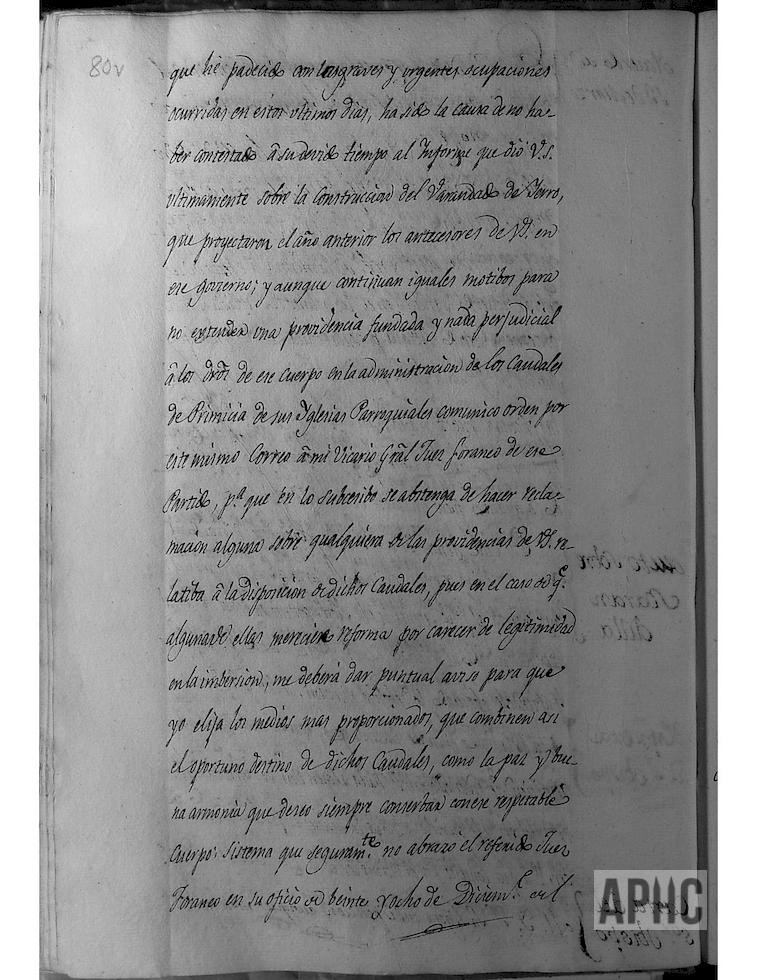 80v
que hé padecido con las graves y urgentes ocupaciones
ocurridas en estos ultimos dias, ha sido la causa de no ha-
ber contestado â su devido tiempo al Informe que dió V.S.
ultimamente sobre la Construccion del Varandado de Fierro,
que proyectaron el año anterior los antecesores de VS. en
ese govierno; y aunque continuan iguales motibos para
no extender una providencia fundada y nada perjudicial
â los dros de ese cuerpo en la administracion de los Caudales
de Primicia de sus Yglesias Parroquiales comunico orden por
este mismo Correo â mi Vicario Gral Juez foraneo de ese
Partido, pa que en lo subcesibo se abstenga de hacer recla-
macion alguna sobre qualquiera de las providencias de VS. re-
latiba â la disposicion de dichos Caudales, pues en el caso de qe
alguna de ellas mereciere reforma por carecer de legitimidad
en la imbersion, me deberá dar puntual aviso para que
yo elija los medios mas proporcionados, que combinen asi
el oportuno destino de dichos Caudales, como la paz y bue
na armonia que deseo siempre conserbar con ese respetable
Cuerpo: sistema que seguramte no abrazó el referido Juez
Foraneo en su oficio de veinte y ocho de Diciemе del
APHC